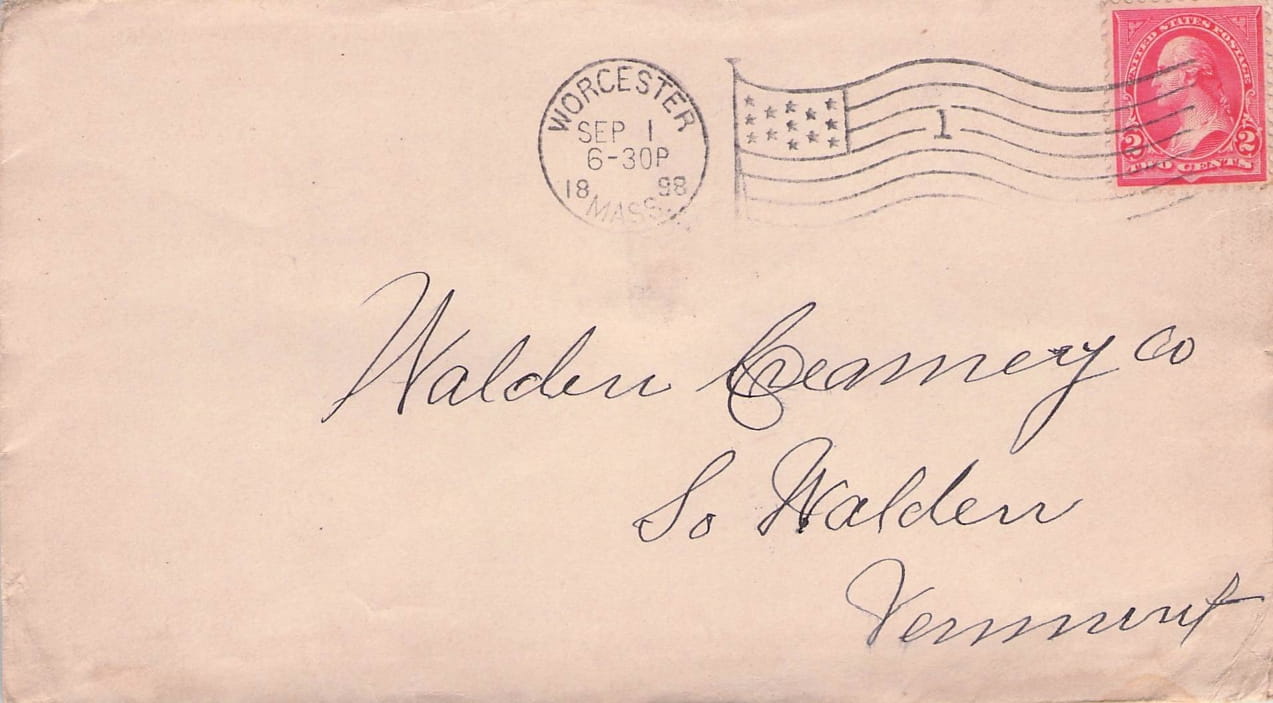 WORCESTER
SEP 1
6-30P
18 98
MASS.
1
UNITED STATES POSTAGE
2 2
TWO CENTS
Walden Creamery Co
So Walden
Vermont